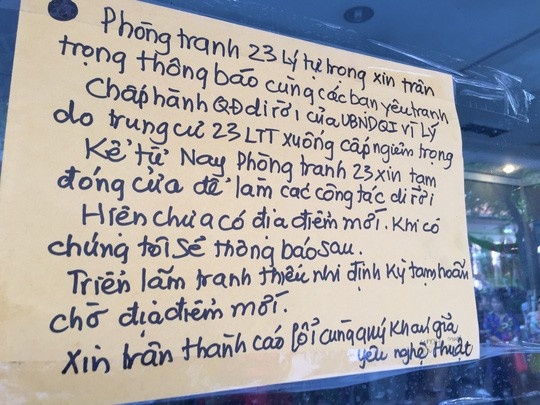 Phòng tranh 23 Lý tự trọng xin trân
trọng thông báo cùng các bạn yêu tranh
Chấp hành QĐ di rời của UBNDQI vì lý
do trung cư 23 LTT xuống cấp ngiêm trọng
Kể từ Nay phòng tranh 23 xin tạm
đóng cửa để làm các công tác di rời
Hiện chưa có địa điểm mới. Khi có
chúng tôi sẽ thông báo sau.
Triển lãm tranh thiếu nhi định kỳ tạm hoãn
chờ địa điểm mới.
xin trân thành cáo lỗi cùng quý khán giả
yêu nghệ thuật